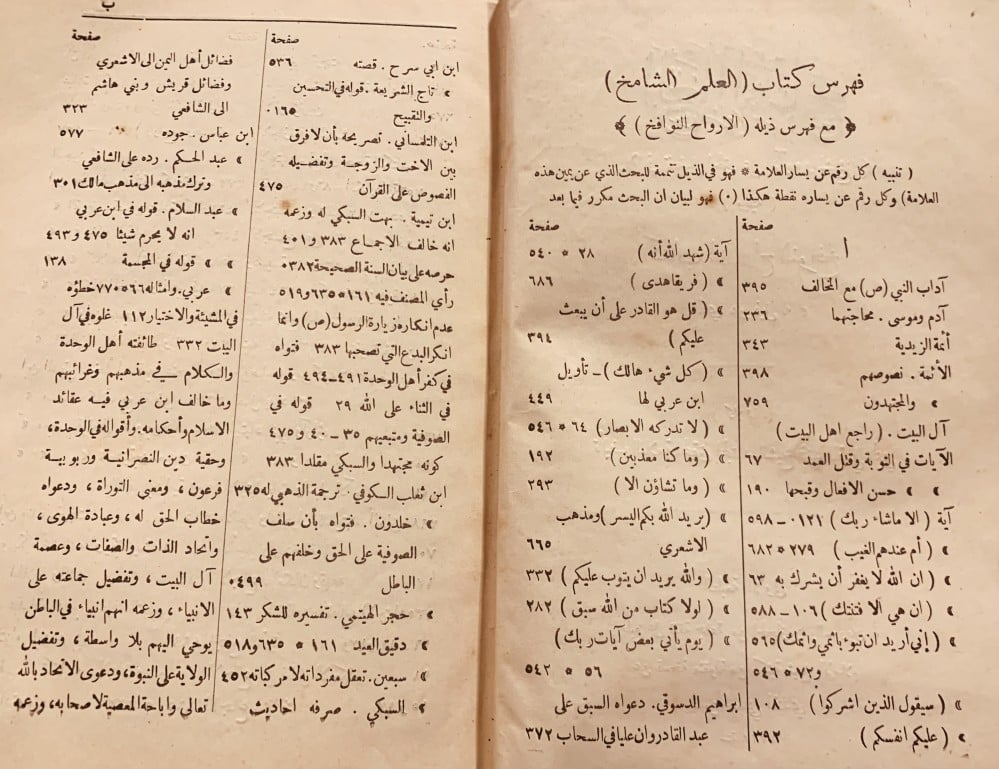 فهرس كتاب (العلم الشامخ)
﴿ مع فهرس ذيله ( الارواح النوافخ ) ﴾
( تنبيه ) كل رقم عن يسار العلامة * فهو في الذيل تتمة للبحث الذي عن يمين هذه
العلامة) وكل رقم عن يساره نقطة هكذا (٠) فهو لبيان ان البحث مكرر فيما بعد
صفحة
ا
آداب النبي (ص) مع المخالف ٣٩٥
آدم وموسى . محاجتهما ٢٣٦
أئمة الزيدية ٣٤٣
الأئمة . نصوصهم ٣٩٨
» والمجتهدون ٧٥٩
آل البيت . ( راجع اهل البيت )
الآيات في التوبة وقتل العمد ٦٧
» » حسن الافعال وقبحها ١٩٠
آية ( الا ماشاء ربك ) ١٢١٠ – ٥٩٨
» ( أم عندهم الغيب ) ٢٧٩ * ٦٨٢
» ( ان الله لا يغفر أن يشرك به ٦٣
» ( ان هي الا فتنتك ) ١٠٦ – ٥٨٨
» ( إني أريد ان تبوء باثمي واثمك) ٥٦٥
و ٧٢ * ٥٤٦
» ( سيقول الذين اشركوا ) ١٠٨
» ( عليكم انفسكم ) ٣٩٢
صفحة
آية (شهد الله أنه ) ٢٨ * ٥٤٠
» ( فريقا هدى ) ٦٨٦
» ( قل هو القادر على أن يبعث
عليكم ) ٣٩٤
» ( كل شيء هالك ) – تأويل
ابن عربي لها ٤٤٩
» ( لا تدركه الابصار ) ٦٤ * ٥٤٦
» ( وما كنا معذبين ) ١٩٢
» ( وما تشاؤن الا ) ٢٩٣
» (يريد الله بكم اليسر )ومذهب
الاشعري ٦٦٥
» ( والله يريد ان يتوب عليكم ) ٣٣٢
» ( لولا كتاب من الله سبق ) ٢٨٢
» ( يوم يأتي بعض آيات ربك )
٥٦ * ٥٤٢
ابراهيم الدسوقي . دعواه السبق على
عبد القادر وان عليا في السحاب ٣٧٢
ب
صفحة
ابن ابي سرح . قصته ٥٣٦
» تاج الشريعة . قوله في التحسين
والتقبيح ١٦٥٠
ابن التلمساني . تصريحه بأن لا فرق
بين الاخت والزوجة وتفضيله
الفصوص على القرآن ٤٧٥
ابن تيمية . بهت السبكي له وزعمه
انه خالف الاجماع ٣٨٣ و ٤٠١
حرصه على بيان السنة الصحيحة ٣٨٢٠
رأي المصنف فيه ١٦١ * ٦٣٥ و ٥١٩
عدم انكاره زيارة الرسول (ص) وانما
انكر البدع التي تصحبها ٣٨٣ فتواه
في كفر أهل الوحدة ٤٩١–٤٩٤ قوله
في الثناء على الله ٢٩ قوله في
الصوفية ومتبعيهم ٣٥ – ٤٠ و ٤٧٥
كونه مجتهدا والسبكي مقلدا ٣٨٣
ابن ثعلب السكوفي . ترجمة الذهبي له ٣٢٥
» خلدون . فتواه بأن سلف
الصوفية على الحق وخلفهم على
الباطل ٤٩٩٠
» حجر الهيتمي . تفسيره للشكر ١٤٣
» دقيق العيد ١٦١ * ٦٣٥ و ٥١٨
» سبعين . تعقل مفرداته لا مركباته ٤٥٢
» السبكي . صرفه احاديث
صفحة
فضائل أهل اليمن الى الاشعري
وفضائل قريش وبني هاشم
الى الشافعي ٣٢٣
ابن عباس . جوده ٥٧٧
» عبد الحكم . رده على الشافعي
وترك مذهبه الى مذهب مالك ٣٠١
» عبد السلام . قوله في ابن عربي
انه لا يحرم شيئا ٤٧٥ و ٤٩٣
» » قوله في المجسمة ١٣٨
» عربي . وامثاله ٥٦٦ ٧٧٠ خطؤه
في المشيئة والاختيار ١١٢ غلوه في آل
البيت ٣٣٢ طائفته أهل الوحدة
والكلام في مذهبهم وغرائبهم
وما خالف ابن عربي فيه عقائد
الاسلام وأحكامه. وأقواله في الوحدة ،
وحقية دين النصرانية وربوبية
فرعون ، ومعنى التوراة ، ودعواه
خطاب الحق له ، وعبادة الهوى ،
واتحاد الذات والصفات ، وعصمة
آل البيت ، وتفضيل جماعته على
الانبياء ، وزعمه انهم انبياء في الباطن
يوحي اليهم بلا واسطة ، وتفضيل
الولاية على النبوة ، ودعوى الاتحاد بالله
تعالى واباحة المعصية لاصحابه ، وزعمه